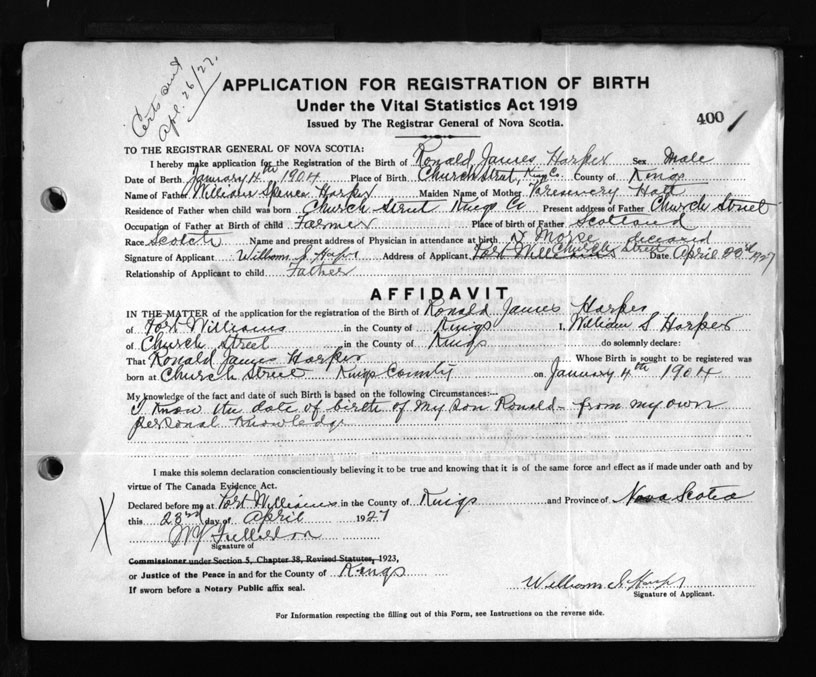 Certs sent
Apl. 26/27.
APPLICATION FOR REGISTRATION OF BIRTH
Under the Vital Statistics Act 1919
Issued by The Registrar General of Nova Scotia.
400
TO THE REGISTRAR GENERAL OF NOVA SCOTIA:
I hereby make application for the Registration of the Birth of Ronald James Harper Sex Male
Date of Berth January 4th 1904 Place of Birth Church Street, Kings Co. County of Kings
Name of Father William Spence Harper Maiden Name of Mother Hatt
Residence of Father when child was born Church Street Kings Co Present address of Father Church Street
Occupation of Father at Birth of child Farmer Place of birth of Father Scotland
Race Scotch Name and present address of Physician in attendance at birth Morse
Signature of Applicant William S Harper Address of Applicant Port Williams Church Street Date April 23rd 1927
Relationship of Applicant to child Father
AFFIDAVIT
IN THE MATTER of the application for the registration of the Birth of Ronald James Harper
of Port Williams in the County of Kings I, William S Harper
of Church Street in the County of Kings do solemnly declare:
That Ronald James Harper Whose Birth is sought to be registered was
born at Church Street Kings County on January 4th 1904
My knowledge of the fact and date of such Birth is based on the following Circumstances:—
I Know the date of birth of my son Ronald - from my own
personal Knowledge
I make this solemn declaration conscientiously believing it to be true and knowing that it is of the same force and effect as if made under oath and by
virtue of The Canada Evidence Act.
Declared before me at Port Williams in the County of Kings and Province of Nova Scotia
this 23rd day of April 1927
X
Signature of
Commissioner under Section 5, Chapter 38, Revised Statutes, 1923,
or Justice of the Peace in and for the County of Kings
If sworn before a Notary Public affix seal.
William S Harper
Signature of Applicant.
For Information respecting the filling out of this Form, see Instructions on the reverse side.